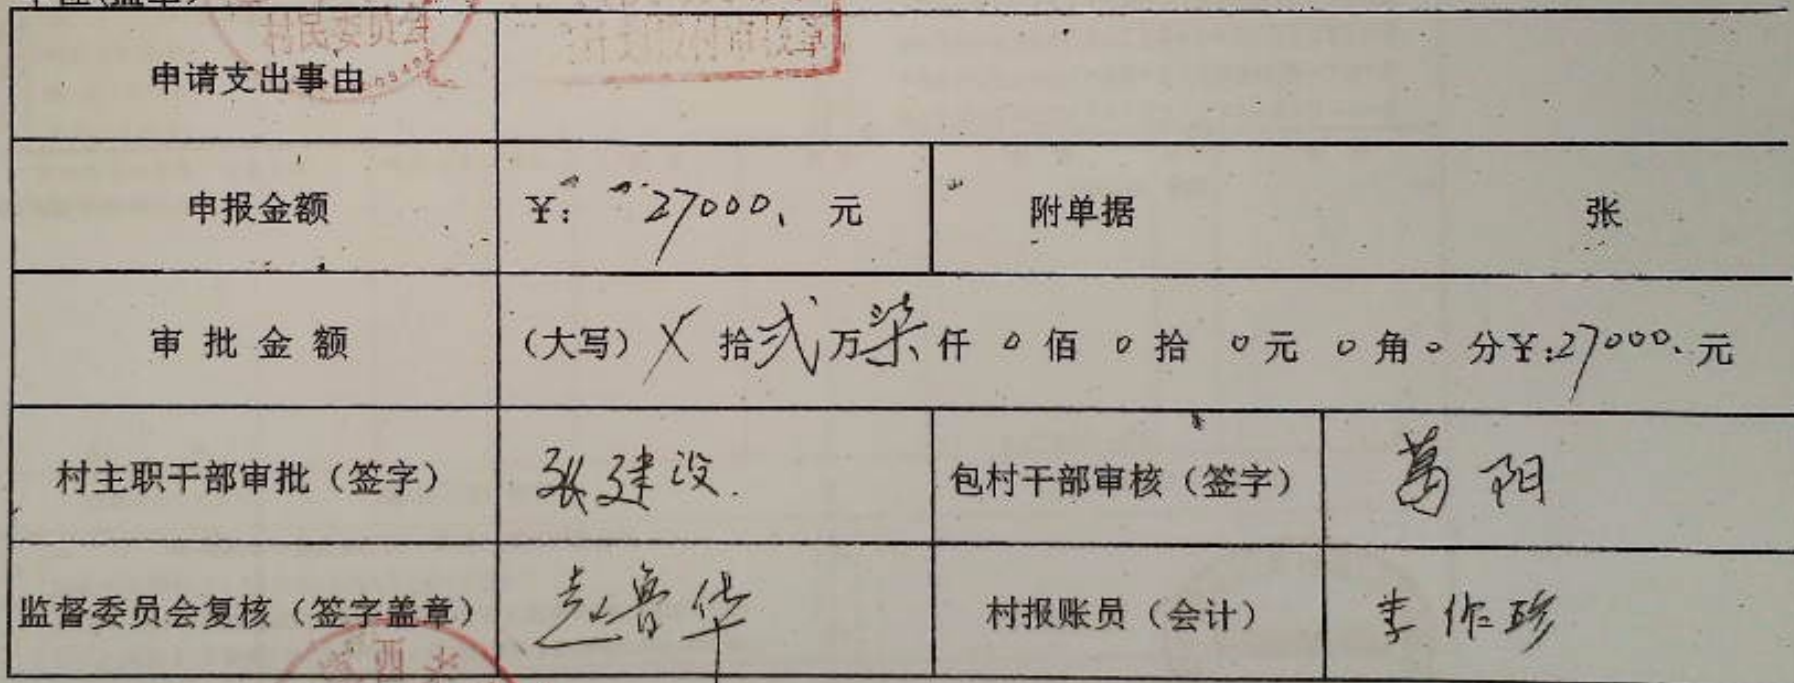 村民委员会
申请支出事由
申报金额 ¥: 27000、元 附单据 张
审批金额 (大写) X 拾 弍 万 柒 仟 0 佰 0 拾 0 元 0 角 0 分 ¥:27000、元
村主职干部审批（签字） 张建设 包村干部审核（签字） 葛阳
监督委员会复核（签字盖章） 赵鲁华 村报账员（会计） 李作珍